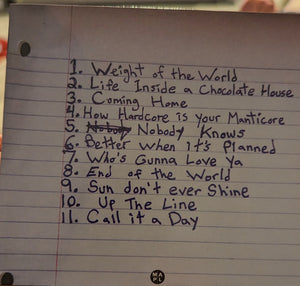 1. Weight of the World
2. Life Inside a Chocolate House
3. Coming Home
4. How Hardcore is your Manticore
5. Nobody Nobody Knows
6. Better when it's Planned
7. Who's Gunna Love Ya
8. End of the World
9. Sun don't ever Shine
10. Up The Line
11. Call it a Day